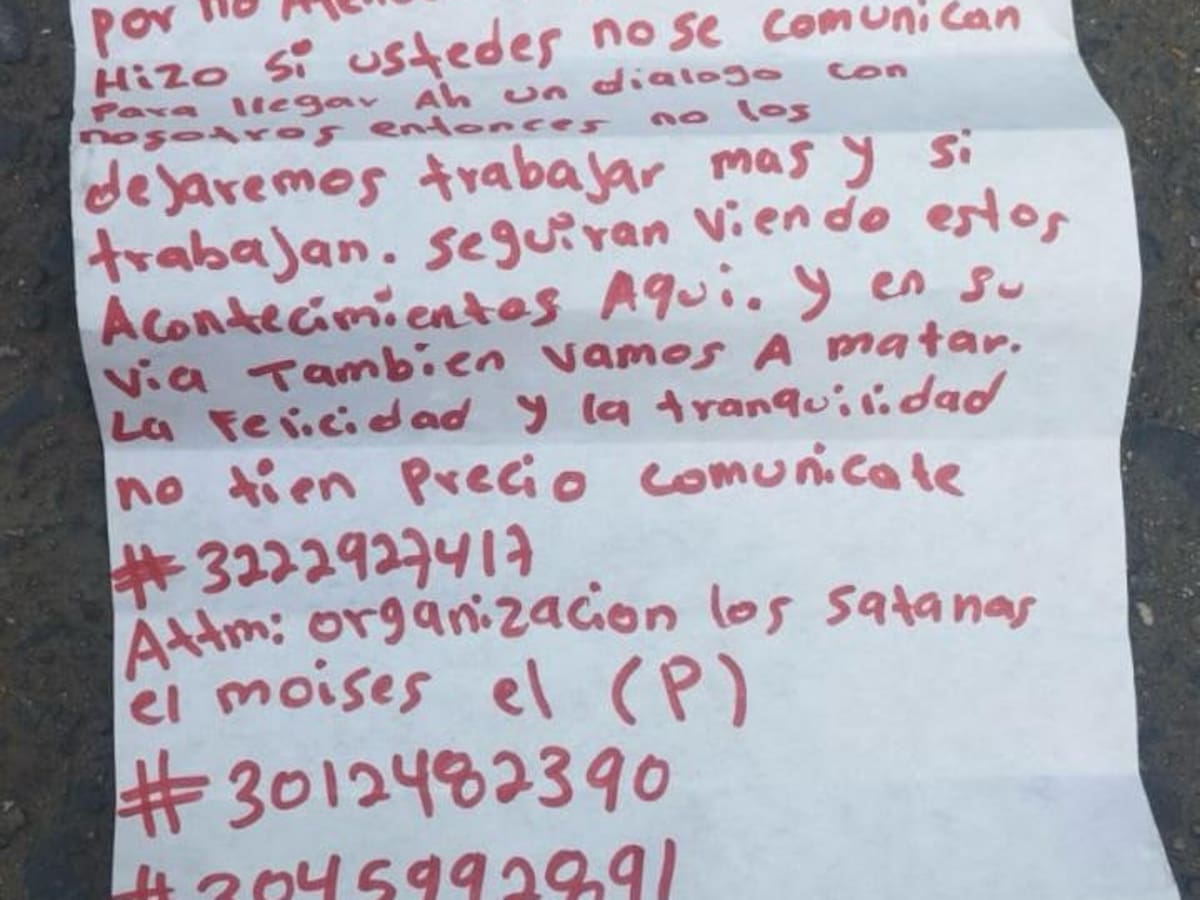 por no
Hizo si ustedes no se comunican
para llegar Ah un dialogo con
nosotros entonces no los
dejaremos trabajar mas y si
trabajan. seguiran viendo estos
Acontecimientos Aqui. y en su
via Tambien vamos A matar.
La Felicidad y la tranquilidad
no tien precio comunicate
# 3222927417
Attm: organizacion los satanas
el moises el (P)
# 3012482390
# 3045992891